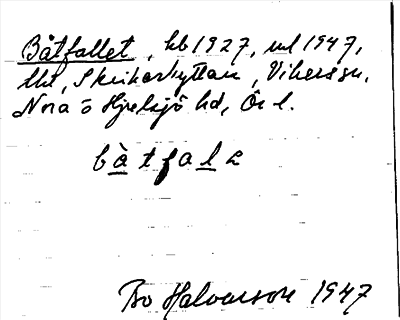 Båtfallet, hb 1927, ml 1947,
lht, Skrikarhyttan, Vikers sn,
Nora o Hjulsjö hd, Ör l.
bàtfalɛ
Bo Halvarson 1947